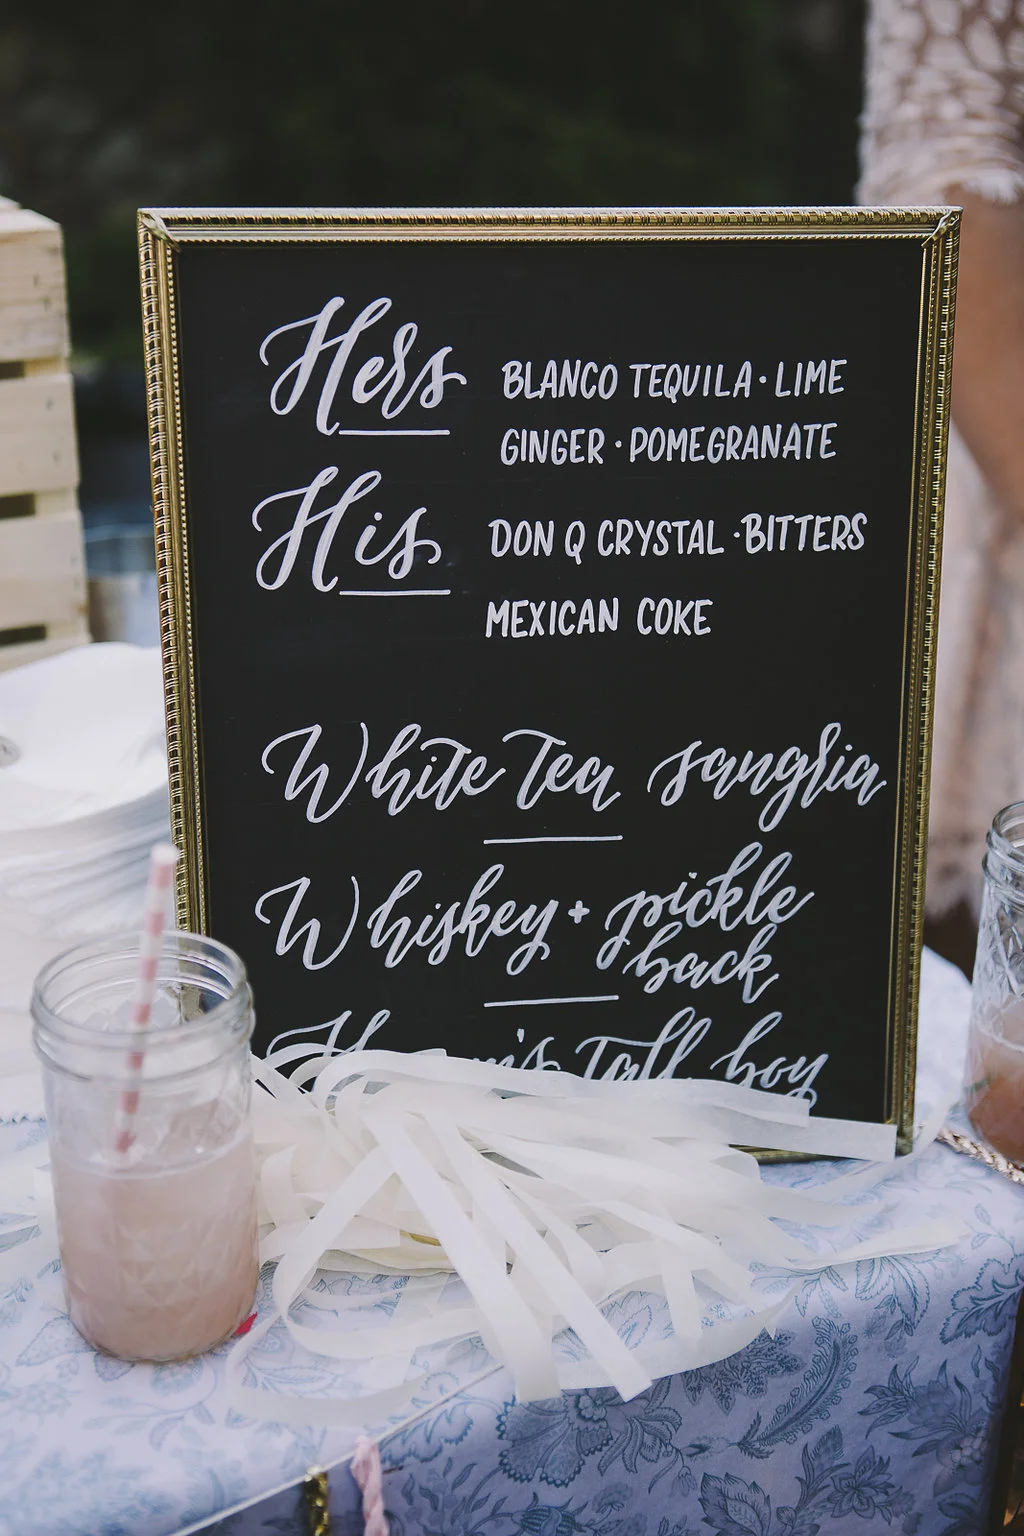 Hers BLANCO TEQUILA · LIME
GINGER · POMEGRANATE
His DON Q CRYSTAL · BITTERS
MEXICAN COKE
White Tea sangria
Whiskey + pickle
back
Tall boy